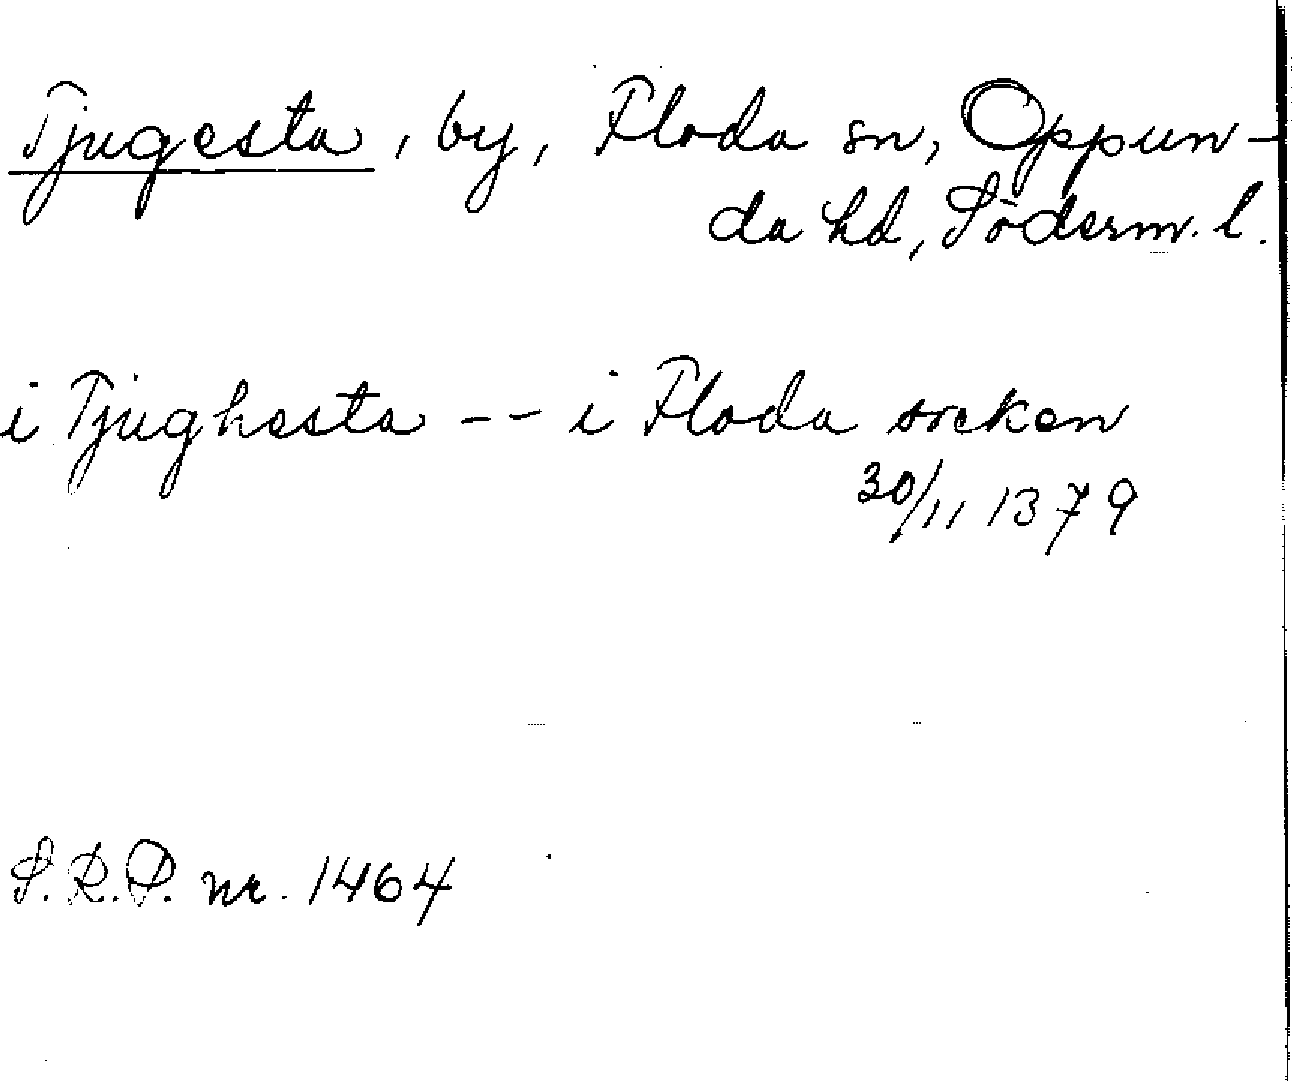 Tjugesta, by, Floda sn, Oppun-
da hd, Söderm. l.
i Tjughesta -- i Floda socken
30/11 1379
S.R.P. nr. 1464